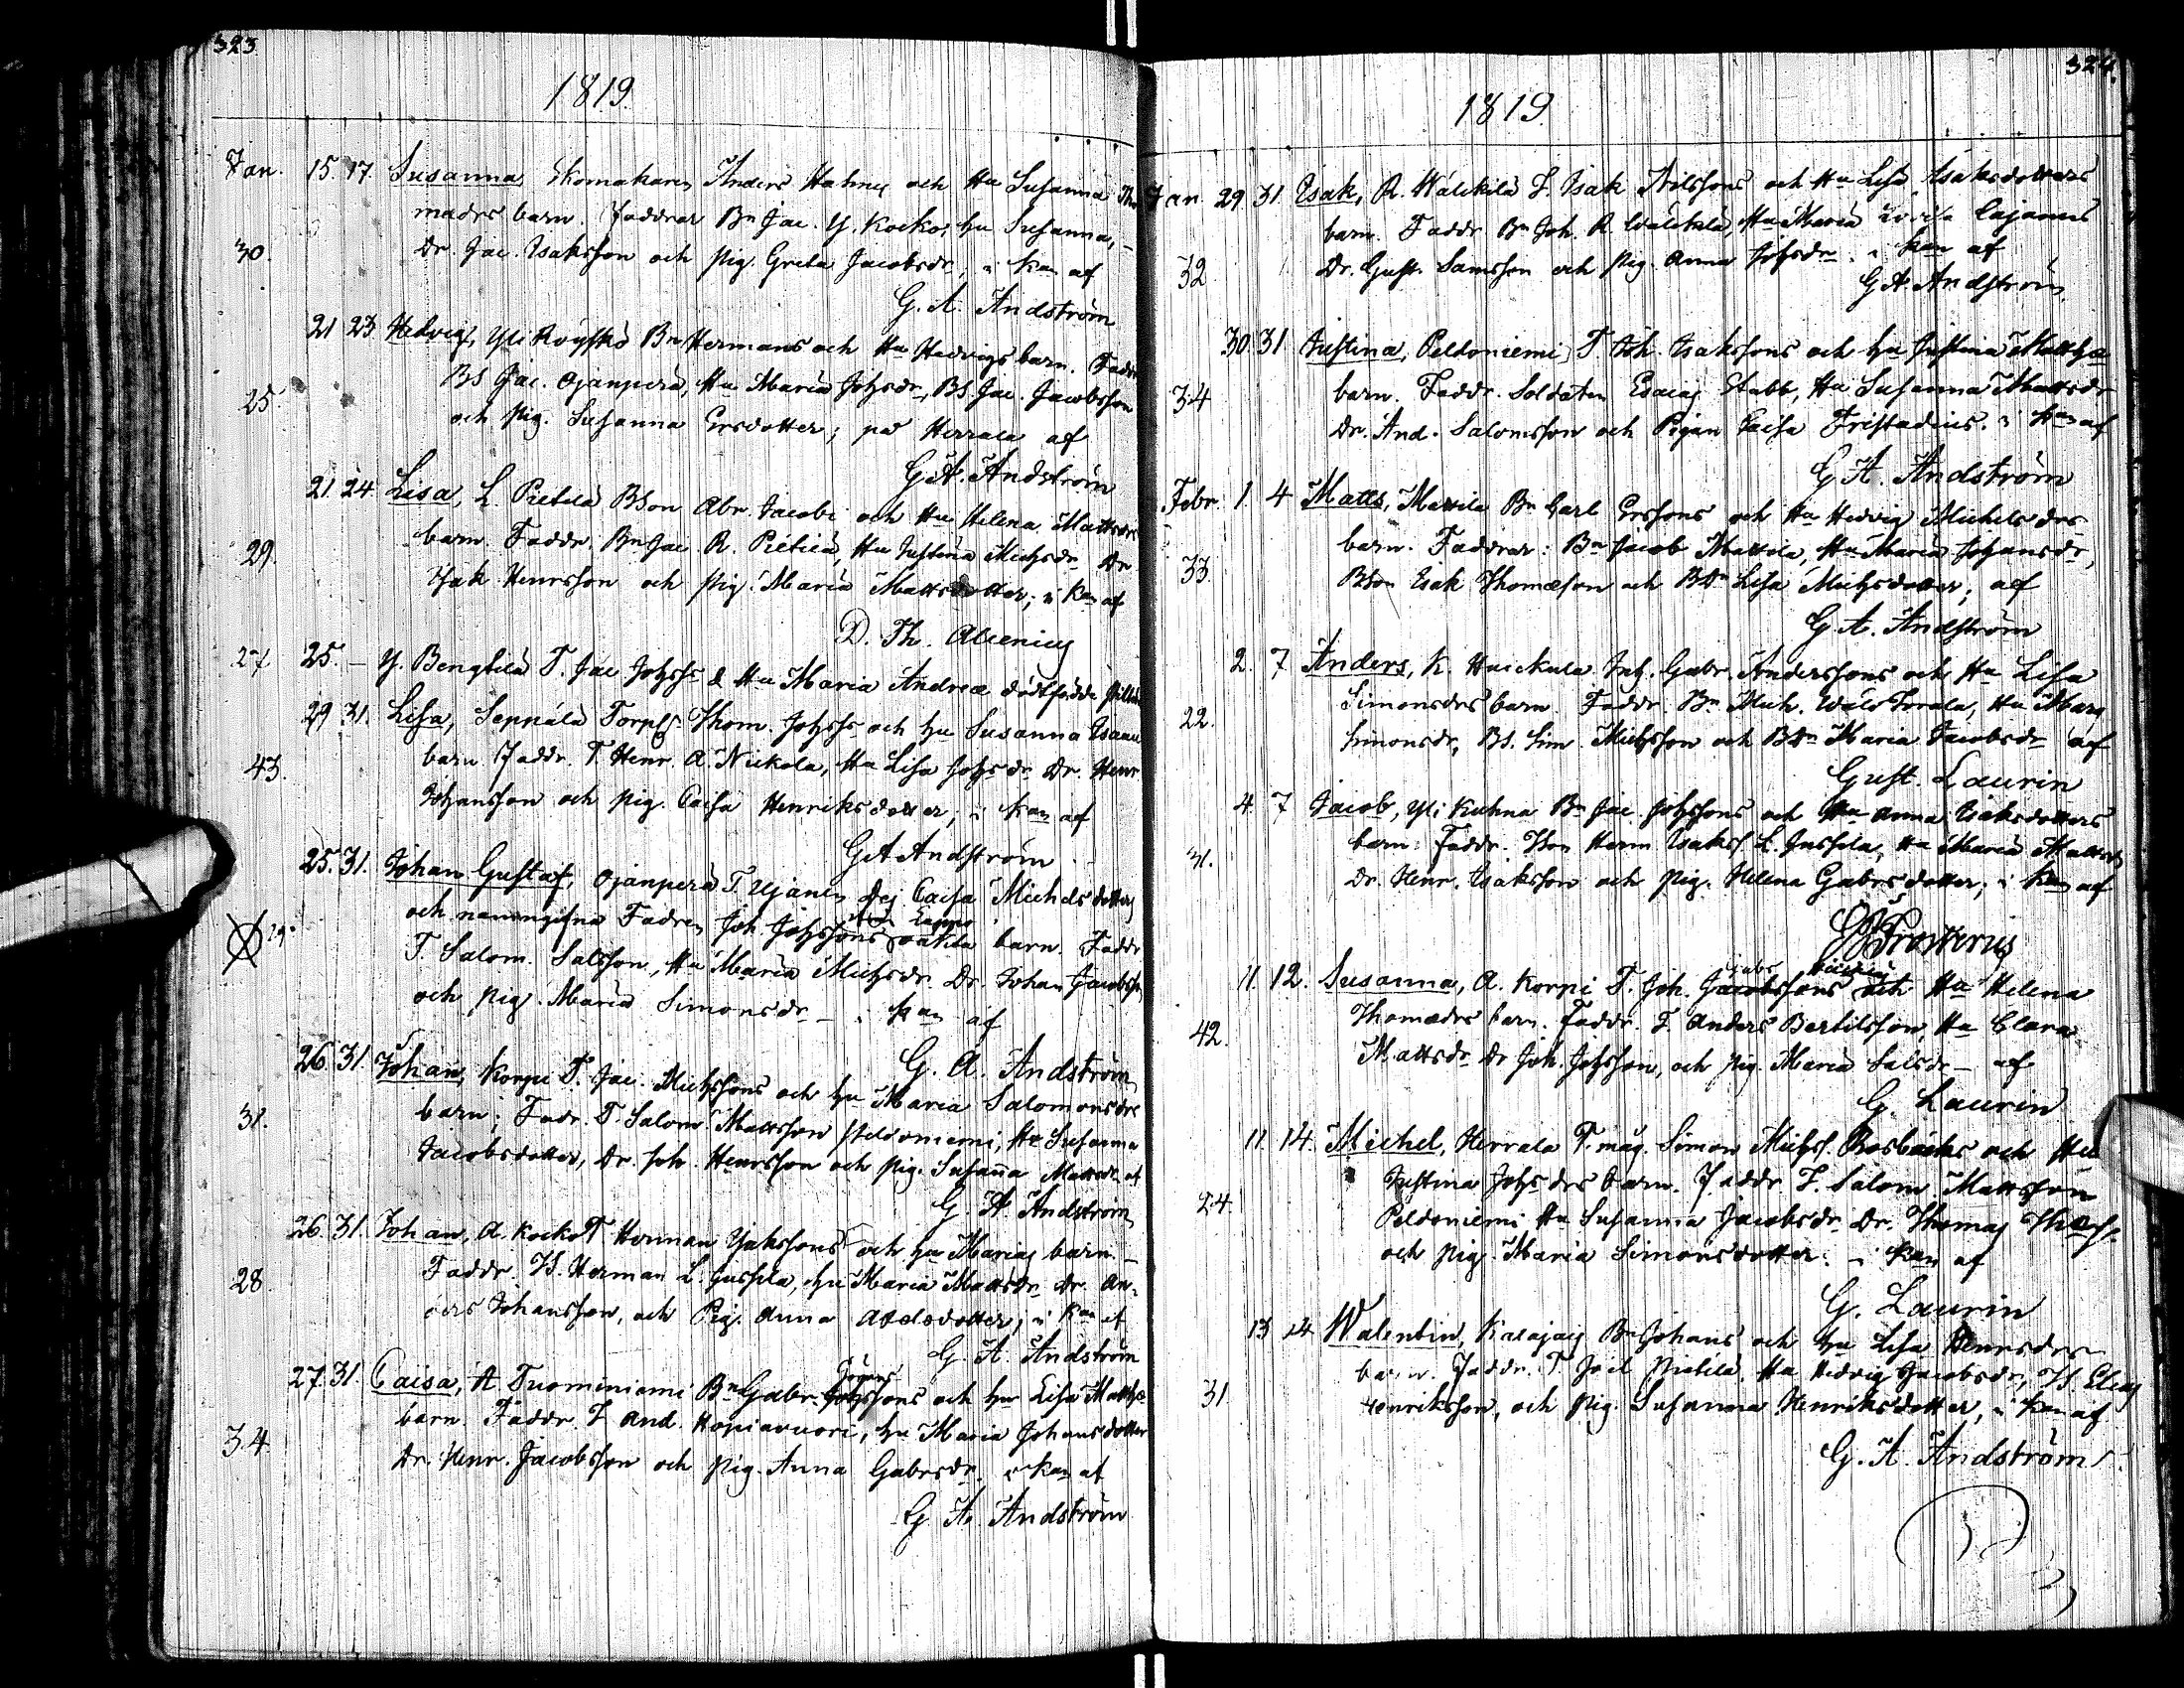 323.
1819
Jan. 15. 17. Susanna, Skomakaren Anders Hahns och Hu Susanna
madrs barn. Faddrar Bn Jac. Y. Kocko, hu Susanna,
30. Dr. Jac. Isaksson och pig. Greta Jacobsdr, i kan af
G. A. Andström
21 23 Hedvig, Yli Röyskö Bn Hermans och Hu Hedvigs barn. Faddr
Bs Jac. Ojanperä, Hu Maria Johsdr, Bs. Jac. Jacobsson
25. och pig. Susanna Ersdotter; på Herrala af
G. A. Andström
21. 24 Lisa, L. Pietilä BSon Abr. Jacobs och Hu Helena Mattsdrs
barn. Faddr. Bn Jac. R. Pietilä, Hu Justina Michsdr Dr
29. Isak Henrsson och pig. Maria Mattsdotter; i kan af
D. Th. Alcenius
27 25. — Y. Bengtilä T. Jac Johss & Hu Maria Andreæ dödfödde
29 31. Lisa, Seppälä Torp. Thom. Johss och hu Susanna Esaiæ
barn. Faddr. T. Henr. A. Nickola, Hu Lisa Johsdr Dr. Henr
43. Johansson och pig. Caisa Henriksdotter; i kan af
G A Andström
25. 31. Johan Gustaf, Ojanperä T. Ujanen Dej Caisa Michelsdotters
och namngifna Fadren Joh. Johssons barn. Faddr
29. T. Salom. Salsson, Hu Maria Michsdr. Dr. Johan Jacobss,
och pig. Maria Simonsdr — i kan af
G. A. Andström
26. 31. Johan, Korpi T. Jac. Michssons och hu Maria Salomonsdrs
barn; Fadr. T. Salom. Mattsson Peldoniemi, Hu Susanna
31. Jacobsdotter, Dr. Joh. Henrsson och pig. Susanna Mattsdr af
G. A Andström
26. 31. Johan, A. Kocko T Herman Isakssons och hu Marias barn —
Faddr. Is. Herman L. Jussila, hu Maria Mattsdr Dr. An-
28. ders Johansson, och Pig. Anna Abelsdotter; i kan af
G. A. Andström
Görans
27. 31. Caisa, A Tuominiemi Bn Gabr. Johssons och hu Lisa Matthæ
barn. Faddr. T. And. Hopiavuori, hu Maria Johansdotter
34 Dr. Henr. Jacobsson och pig. Anna Gabrsdr. i kan af
G. A. Andström
324.
1819.
Jan. 29 31. Esak, R. Wälckilä L. Isak Nilssons och Hu Lisa Isaksdotters
barn. Faddr. Bn Joh. R. Wälckilä, Hu Maria Lovisa Cajanus
32 Dr. Gust. Samsson och pig. Anna Johsdr. i kan af
G A Andström
30. 31 Justina, Peldoniemi T. Joh. Isakssons och hu Justina Matthæ
barn. Faddr. Soldaten Esaias Stabb, Hu Susanna Mattsdr
34 Dr. And. Salomsson och Pigan Caisa Fristadius. i kan af
G A. Andström
Febr. 1. 4 Matts, Mattila Bn Carl Erssons och Hu Hedvig Michelsdrs
barn. Faddrar: Bn Jacob Mattila, Hu Maria Johansdr,
33. BSon Esak Thomæson och BDr Lisa Michsdotter; af
G A. Andström
2. 7 Anders, K. Huickula Inh. Gabr. Anderssons och Hu Lisa
Simonsdrs barn. Faddr. Bn Mich. Wäls Torala, Hu Marg
22. Simonsdr, Bs. Sim. Michsson och BDr Maria Jacobsdr af
Gust. Laurin
4. 7 Jacob, Yli Kuhna Bn Jac. Johssons och Hu Anna Isaksdotters
barn. Faddr. Herm Isakss L. Jussila, Hu Maria Mattsdr
31. Dr. Henr. Isaksson och pig. Helena Gabrsdotter; i kan af
Frosterus
Gabr.
11. 12. Susanna, A. Korpi T. Joh. Jacobssons och Hu Helena
Thomædrs barn. Faddr. T. Anders Bertilsson, Hu Clara
42. Mattsdr Dr Joh. Johsson, och pig. Maria Salsdr — af
G. Laurin
11. 14. Michel, Herrala T. måg. Simon Michss. Rosbacks och Hu
Justina Johsdrs barn. Faddr. T. Salom. Mattsson
24. Peldoniemi Hu Susanna Jacobsdr Dr. Thomas
och pig. Maria Simonsdotter: — i kan af
G. Laurin
13 14 Walentin, Kalajais Bn Johans och hu Lisa Henrsdrs
barn. Faddr. T Joel Pietilä, Hu Hedvig Jacobsdr, Is. Elias
31 Henriksson, och pig. Susanna Henriksdotter, i kan af
G. A. Andström